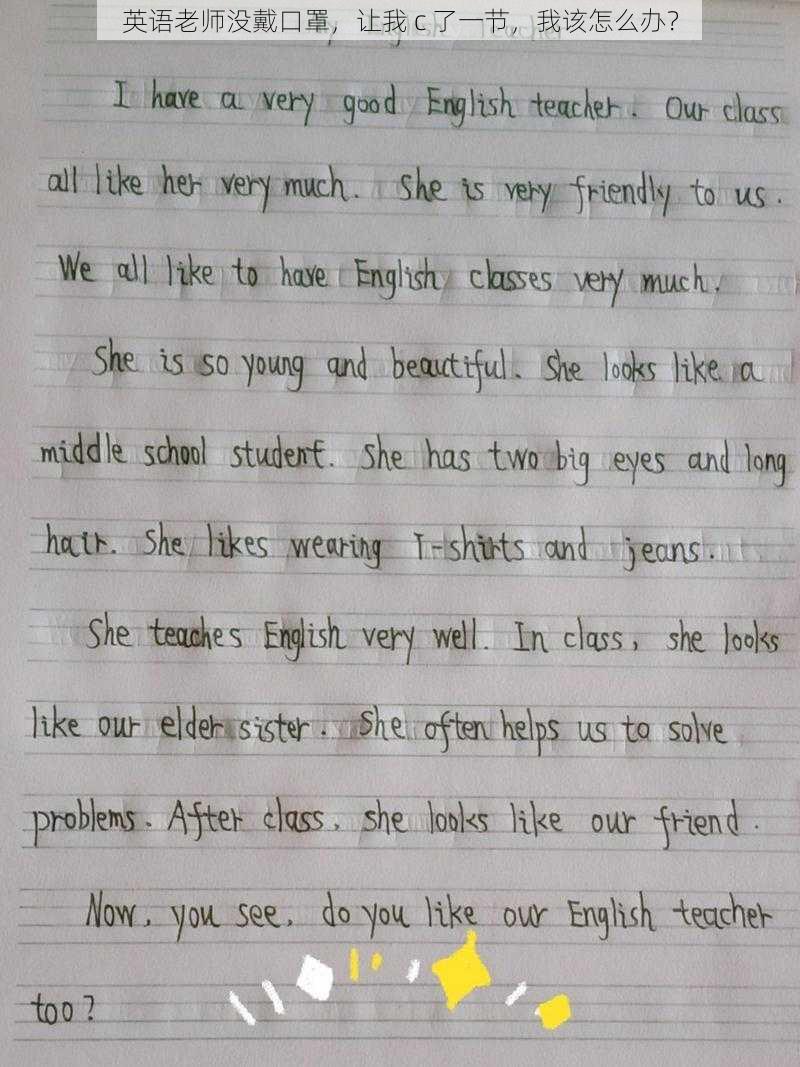 英语老师没戴口罩，让我 c 了一节，我该怎么办？
I have a very good English teacher. Our class
all like her very much. She is very friendly to us.
We all like to have English classes very much.
She is so young and beautiful. She looks like a
middle school student. She has two big eyes and long
hair. She likes wearing T-shirts and jeans.
She teaches English very well. In class, she looks
like our elder sister. She often helps us to solve
problems. After class, she looks like our friend.
Now, you see, do you like our English teacher
too?